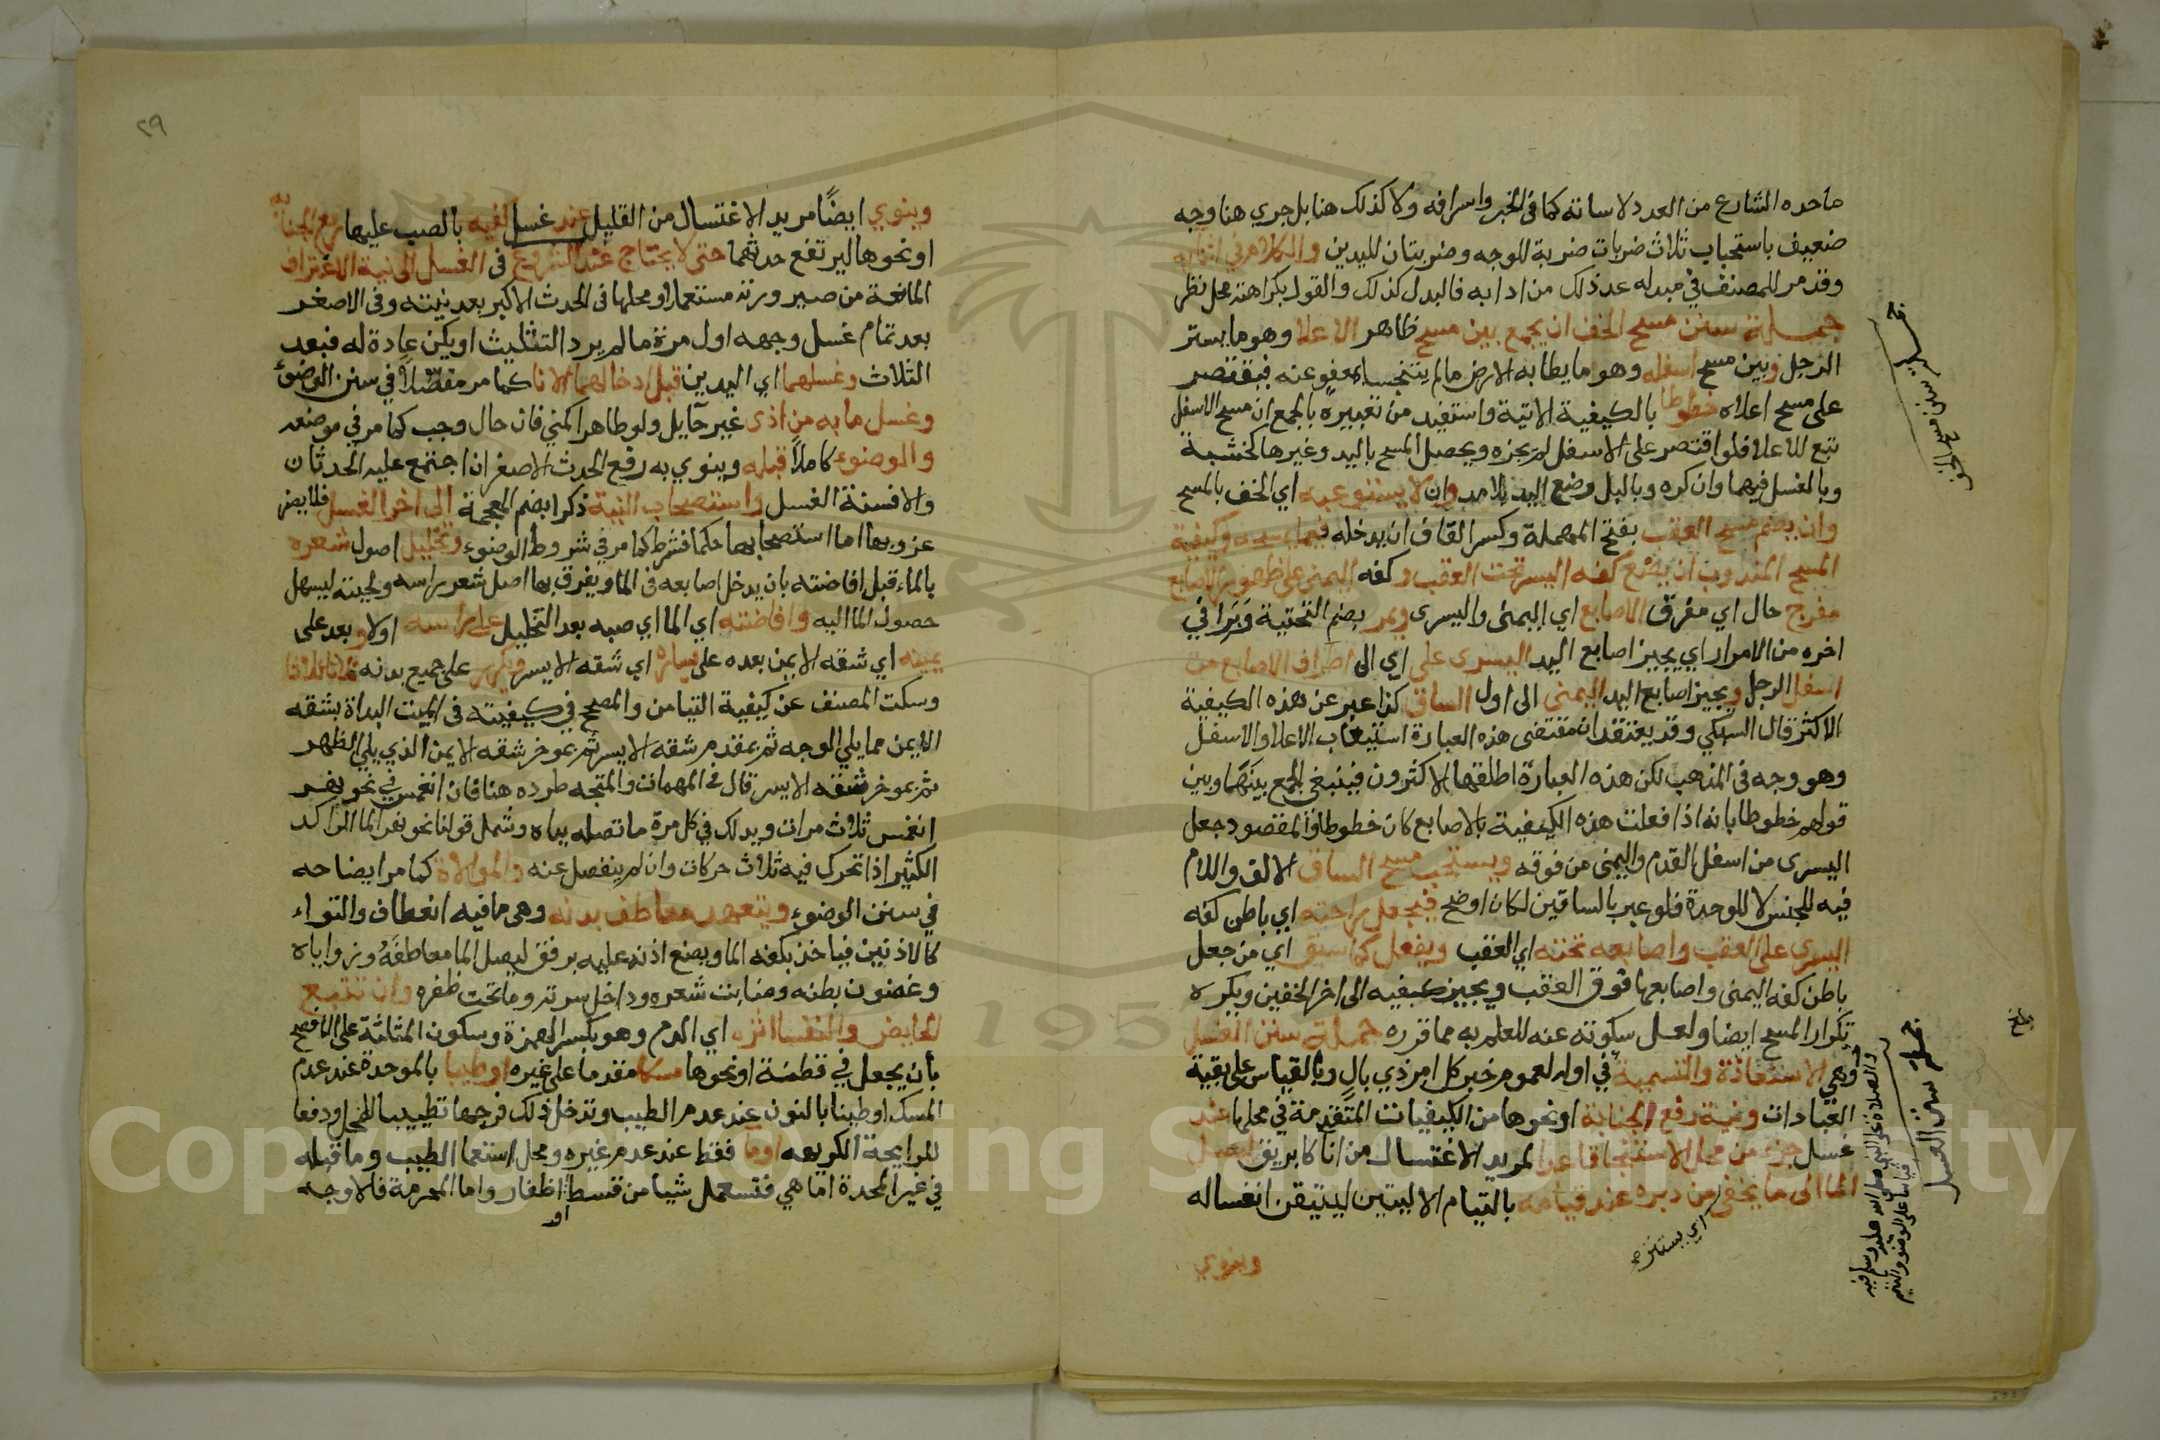 ماحده الشارع من العدد لاساته كما في الخبر واسرافه ولا كذلك هنا بل جري هنا وجه
ضعيف باستحباب ثلاث ضربات ضربة للوجه وضربتان لليدين والكلام في اثنايه
وقد مر للمصنف في مبدله عد ذلك من ادابه فالبدل كذلك والقول بكراهته محل نظر
جملة سنن مسح الخف ان يجمع بين مسح ظاهر الاعلا وهو ما يستر
الرجل وبين مسح اسفله وهو ما يطا به الارض ما لم يتنجس بمعفو عنه فيقتصر
على مسح اعلاه خطوطا بالكيفية الاتية واستفيد من تعبيره بالجمع ان مسح الاسفل
تبع للاعلا فلو اقتصر على الاسفل لم يجزه ويحصل المسح باليد وغيرها كخشبة
وبالغسل فيهما وان كره وبالبل وضع اليد بلا مد وان لا يستوعبه اي الخف بالمسح
وان يضم مسح العقب بفتح المهملة وكسر القاف ان يدخله فيما يمسحه وكيفية
المسح المندوب ان يضع كفه اليسر تحت العقب وكفه اليمنى على ظهور الاصابع
مفرج حال اي مفرق الاصابع اي اليمنى واليسرى ويمر بضم التحتية وبرا في
اخره من الامرار اي يجيز اصابع اليد اليسرى على اي الى اطراف الاصابع من
اسفل الرجل ويجيز اصابع اليد اليمنى الى اول الساق كذا عبر عن هذه الكيفية
الاكثر قال السبكي وقد يعتقد ان مقتضى هذه العبارة استيعاب الاعلا والاسفل
وهو وجه في المذهب لكن هذه العبارة اطلقها الاكثرون فينبغي الجمع بينهما وبين
قولهم خطوطا بانه اذا فعلت هذه الكيفية بالاصابع كان خطوطا والمقصود جعل
اليسرى من اسفل القدم واليمنى من فوقه ويستحب مسح الساق الالف واللام
فيه للجنس لا للوحدة فلو عبر بالساقين لكان اوضح فيجعل راحته اي باطن كفه
اليسرى على العقب واصابعه تحته اي العقب ويفعل كما سبق اي من جعل
باطن كفه اليمنى واصابعها فوق العقب ويجيز كفيه الى اخر الخفين ويكره
تكرار المسح ايضا ولعل سكوته عنه للعلم به مما قرره جملة سنن الغسل
وهي الاستعاذة والتسمية في اوله لعموم خبر كل امر ذي بال وبالقياس على بقية
العبادات ونية رفع الجنابة او نحوها من الكيفيات المتقدمة في محلها عند
غسل جزء من محل الاستنجا قاعدا لمريد الاغتسال من انا كابريق ليصل
الما الى ما يخفى من دبره عند قيامه بالتيام الاليتين ليتيقن انغساله
اي يستتره
وينوي
جملة سنن مسح الخف
جملة سنن الغسل
والصلاة على النبي صلى الله عليه وسلم فيه
قياسا على الوضو والتيمم
بلغ
٢٩
وينوي ايضًا مريد الاغتسال من القليل عند غسل كفيه بالصب عليها رفع الجنابة
او نحوها ليرتفع حدثهما حتى لا يحتاج عند الشروع في الغسل الى نية الاغتراف
المانعة من صيرورته مستعملا او محلها في الحدث الاكبر بعد نيته وفي الاصغر
بعد تمام غسل وجهه اول مرة ما لم يرد التثليث او يكن عادة له فبعد
الثلاث وغسلهما اي اليدين قبل ادخالهما الانا كما مر مفصلا في سنن الوضوء
وغسل ما به من اذى غير حآيل ولو طاهرا كمني فان حال وجب كما مر في موضعه
والوضوء كاملا قبله وينوي به رفع الحدث الاصغر ان اجتمع عليه الحدثان
والا فسنة الغسل واستصحاب النية ذكرا بضم المعجمة الى اخر الغسل فلا يضر
عزوبها اما استصحابها حكما فشرط كما مر في شروط الوضوء وتخليل اصول شعره
بالماء قبل افاضته بان يدخل اصابعه في الما ويفرق بها اصل شعر راسه ولحيته ليسهل
حصول الما اليه وافاضته اي الما اي صبه بعد التخليل على راسه اولا وبعد على
يمينه اي شقه الايمن بعده على يساره اي شقه الايسر ويكرر على جميع بدنه ثلاثا ثلاثا
وسكت المصنف عن كيفية التيامن والمصحح في كيفيته في الميت البداة بشقه
الايمن مما يلي الوجه ثم بمقدم شقه الايسر ثم بموخر شقه الايمن الذي يلي الظهر
ثم بموخر شقه الايسر قال في المهمات والمتجه طرده هنا فان انغمس في نحو نهر
انغمس ثلاث مرات ويدلك في كل مرة ما تصله يداه وشمل قولنا نحو نهر الما الراكد
الكثير اذا تحرك فيه ثلاث حركات وان لم ينفصل عنه والموالاة كما مر ايضاحه
في سنن الوضوء ويتعهد معاطف بدنه وهي ما فيه انعطاف والتواء
كالاذنين فياخذ بكفه الما ويضع اذنه عليه برفق ليصل الما معاطفه وزواياه
وغضون بطنه ومنابت شعره وداخل سرته وما تحت ظفره وان تتبع
الحايض والنفسا اثره اي الدم وهو بكسر الهمزة وسكون المثلثة على الافصح
بان يجعل في قطنة او نحوها مسكا مقدما على غيره او طيبا بالموحدة عند عدم
المسك او طينا بالنون عند عدم الطيب وتدخل ذلك فرجها تطييبا للمحل ودفعا
للرايحة الكريهه او ما فقط عند عدم غيره ومحل استعما الطيب وما قبله
في غير المحدة اما هي فتستعمل شيا من قسط او اظفار واما المحرمة فالاوجه